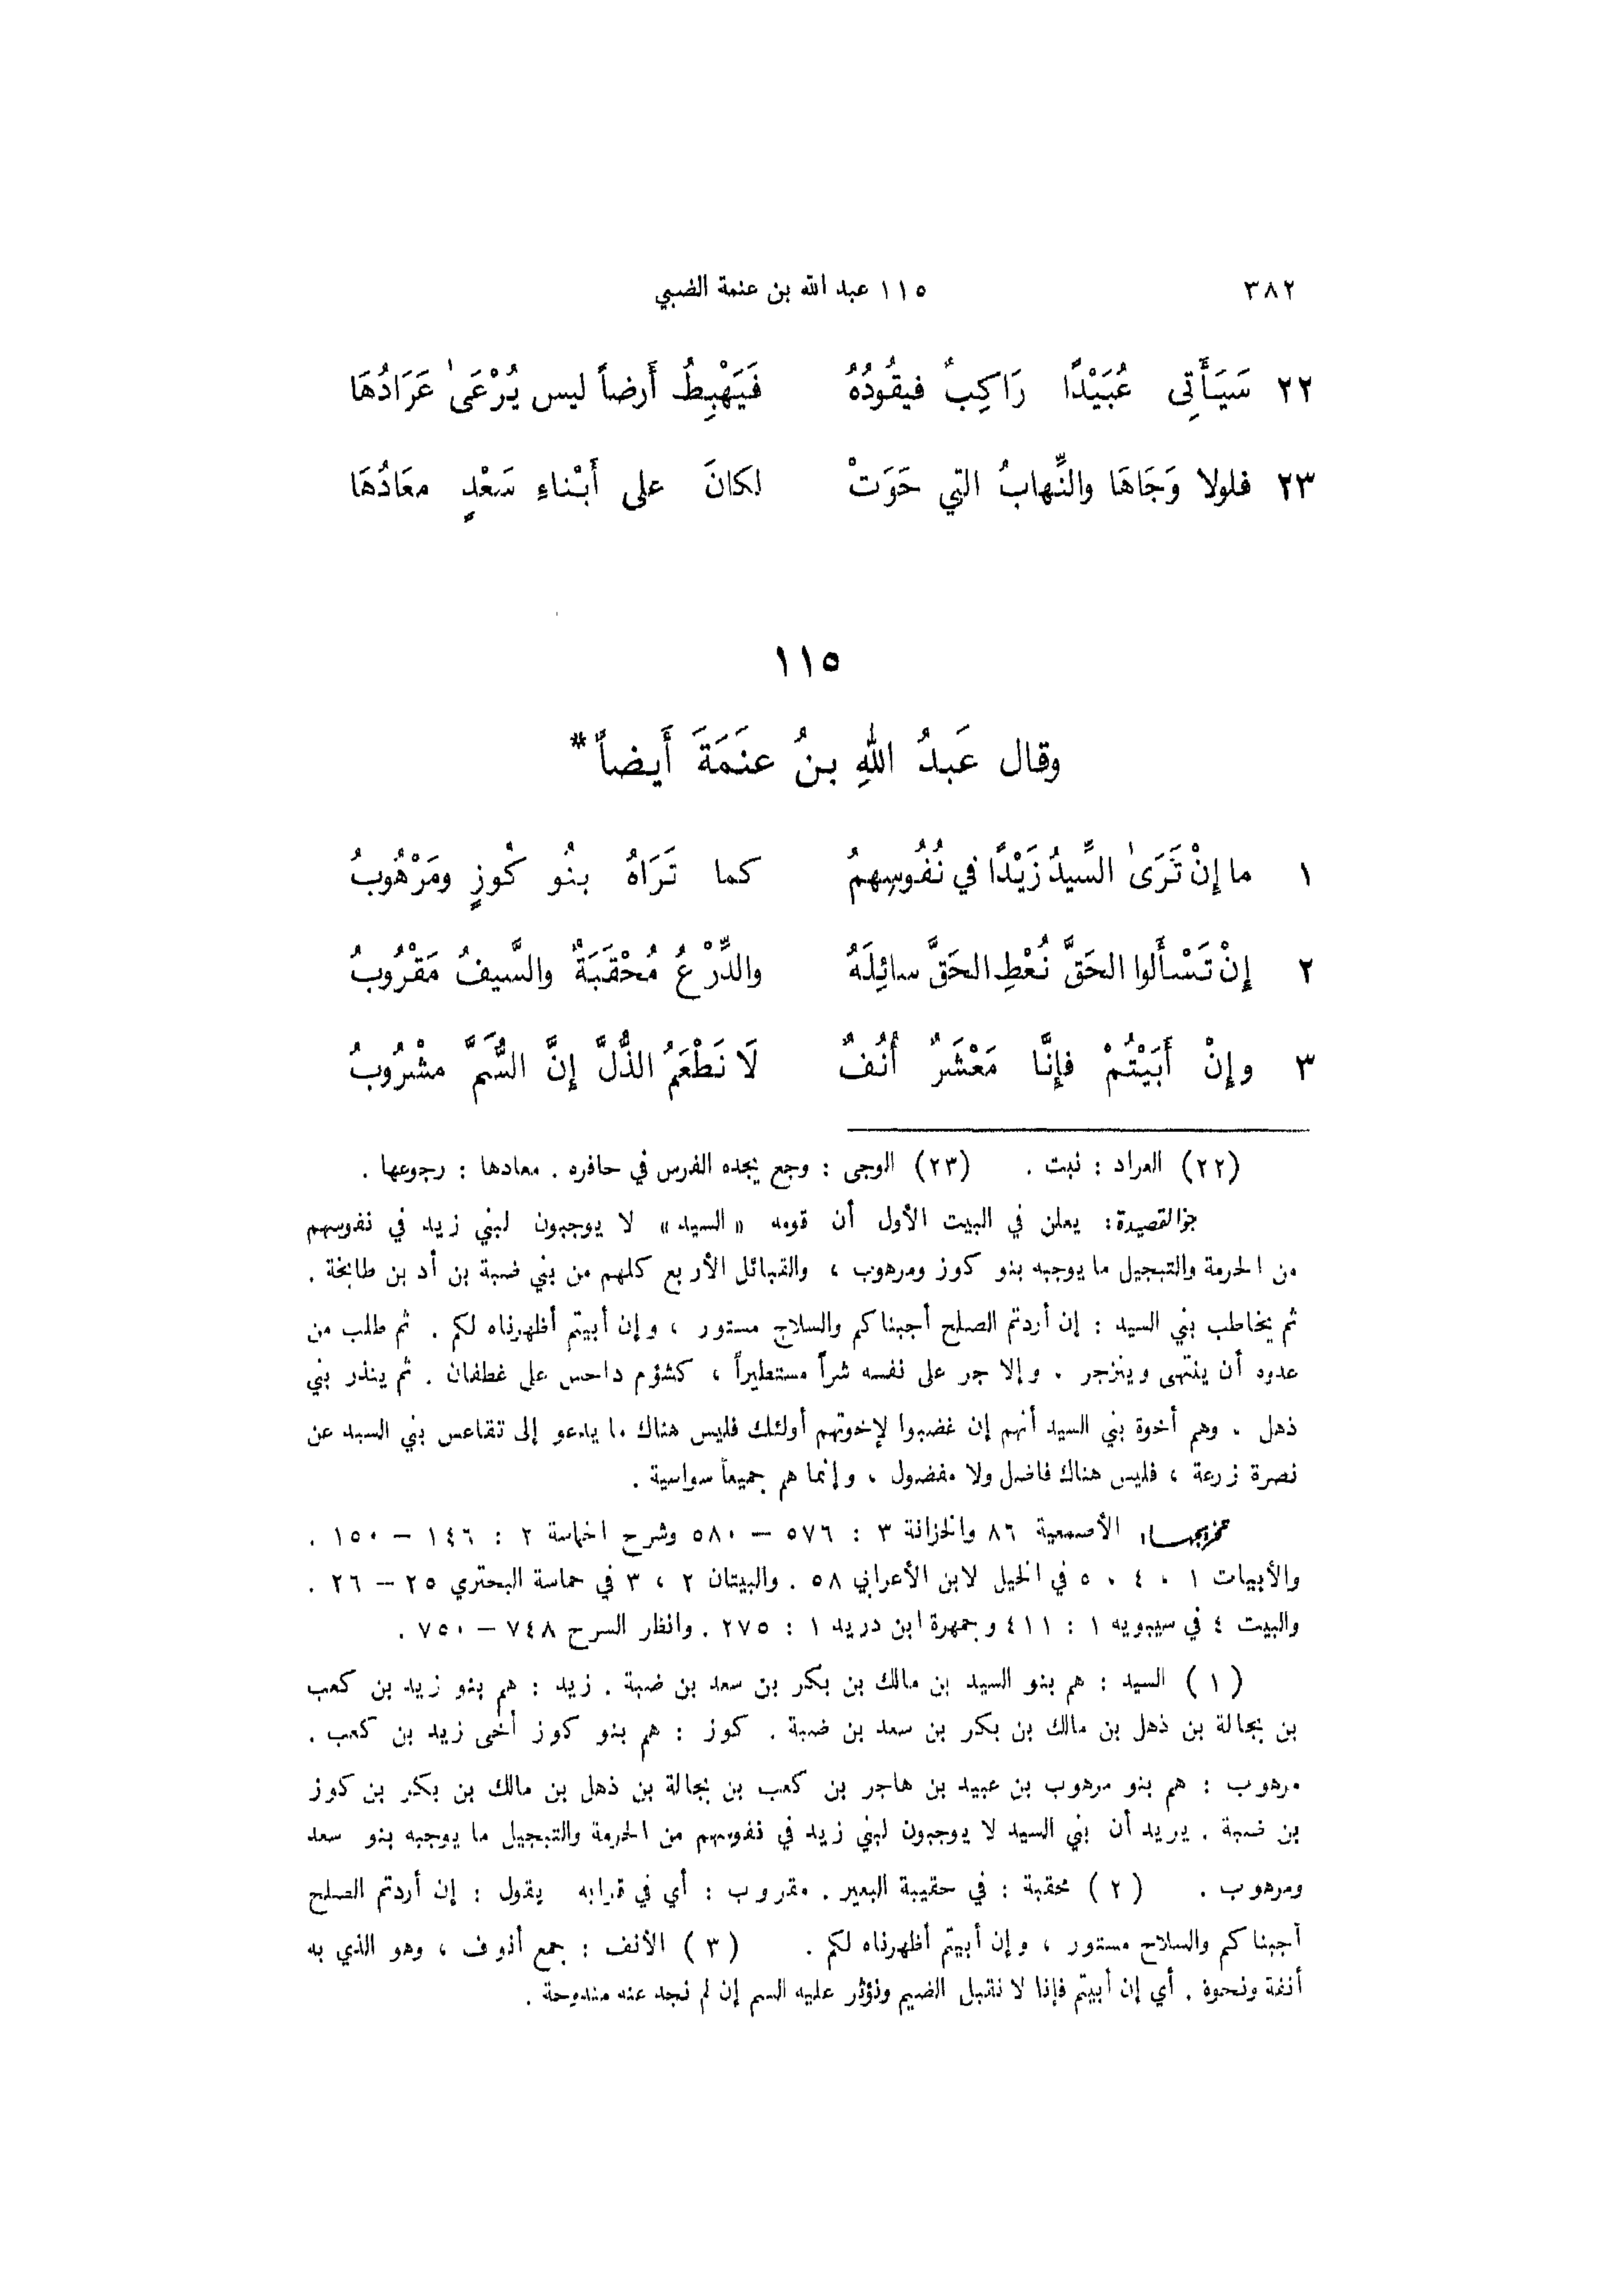 ٣٨٢ ١١٥ عبد الله بن عنمة الضبي
٢٢ سَيَأْتِى عُبَيْدًا رَاكِبٌ فيقُودُهُ فَيَهْبِطُ أَرضاً ليس يُرْعَىٰ عَرَادُهَا
٢٣ فلولا وَجَاهَا والنِّهابُ التي حَوَتْ لكانَ على أَبْناءِ سَعْدٍ معَادُهَا
١١٥
وقال عَبدُ اللهِ بنُ عنَمَةَ أَيضاً*
١ ما إِنْ تَرَىٰ السِّيدُ زَيْدًا في نُفُوسِهمُ كما تَرَاهُ بنُو كُوزٍ ومَرْهُوبُ
٢ إِنْ تَسْأَلوا الحَقَّ نُعْطِ الحَقَّ سائِلَهُ والدِّرْعُ مُحْقَبَةٌ والسَّيفُ مَقْرُوبُ
٣ وإِنْ أَبَيْتُمْ فإِنَّا مَعْشَرٌ أُنُفٌ لَا نَطْعَمُ الذُّلَّ إِنَّ السُّمَّ مشْرُوبُ
(٢٢) العراد : نبت . (٢٣) الوجى : وجع يجده الفرس في حافره . معادها : رجوعها .
جو القصيدة: يعلن في البيت الأول أن قومه « السيد » لا يوجبون لبني زيد في نفوسهم
من الحرمة والتبجيل ما يوجبه بنو كوز ومرهوب ، والقبائل الأربع كلهم من بني ضبة بن أد بن طابخة .
ثم يخاطب بني السيد : إن أردتم الصلح أجبناكم والسلاح مستور ، وإن أبيتم أظهرناه لكم . ثم طلب من
عدوه أن ينتهى وينزجر . وإلا جر على نفسه شراً مستطيراً ، كشؤم داحس على غطفان . ثم ينذر بني
ذهل . وهم أخوة بني السيد أنهم إن غضبوا لإخوتهم أولئك فليس هناك ما يدعو إلى تقاعس بني السيد عن
نصرة زرعة ، فليس هناك فاضل ولا مفضول ، وإنما هم جميعاً سواسية .
تخريجها: الأصمعية ٨٦ والخزانة ٣ : ٥٧٦ – ٥٨٠ وشرح الحماسة ٢ : ١٤٦ – ١٥٠ .
والأبيات ١ ، ٤ ، ٥ في الخيل لابن الأعرابي ٥٨ . والبيتان ٢ ، ٣ في حماسة البحتري ٢٥ – ٢٦ .
والبيت ٤ في سيبويه ١ : ٤١١ وجمهرة ابن دريد ١ : ٢٧٥ . وانظر الشرح ٧٤٨ – ٧٥٠ .
(١) السيد : هم بنو السيد بن مالك بن بكر بن سعد بن ضبة . زيد : هم بنو زيد بن كعب
بن بجالة بن ذهل بن مالك بن بكر بن سعد بن ضبة . كوز : هم بنو كوز أخى زيد بن كعب .
مرهوب : هم بنو مرهوب بن عبيد بن هاجر بن كعب بن بجالة بن ذهل بن مالك بن بكر بن كوز
بن ضبة . يريد أن بني السيد لا يوجبون لبني زيد في نفوسهم من الحرمة والتبجيل ما يوجبه بنو سعد
ومرهوب . (٢) محقبة : في حقيبة البعير . مقروب : أي في قرابه يقول : إن أردتم الصلح
أجبناكم والسلاح مستور ، وإن أبيتم أظهرناه لكم . (٣) الأنف : جمع أنوف ، وهو الذي به
أنفة ونخوة . أي إن أبيتم فإنا لا نقبل الضيم ونؤثر عليه السم إن لم نجد عنه مندوحة .